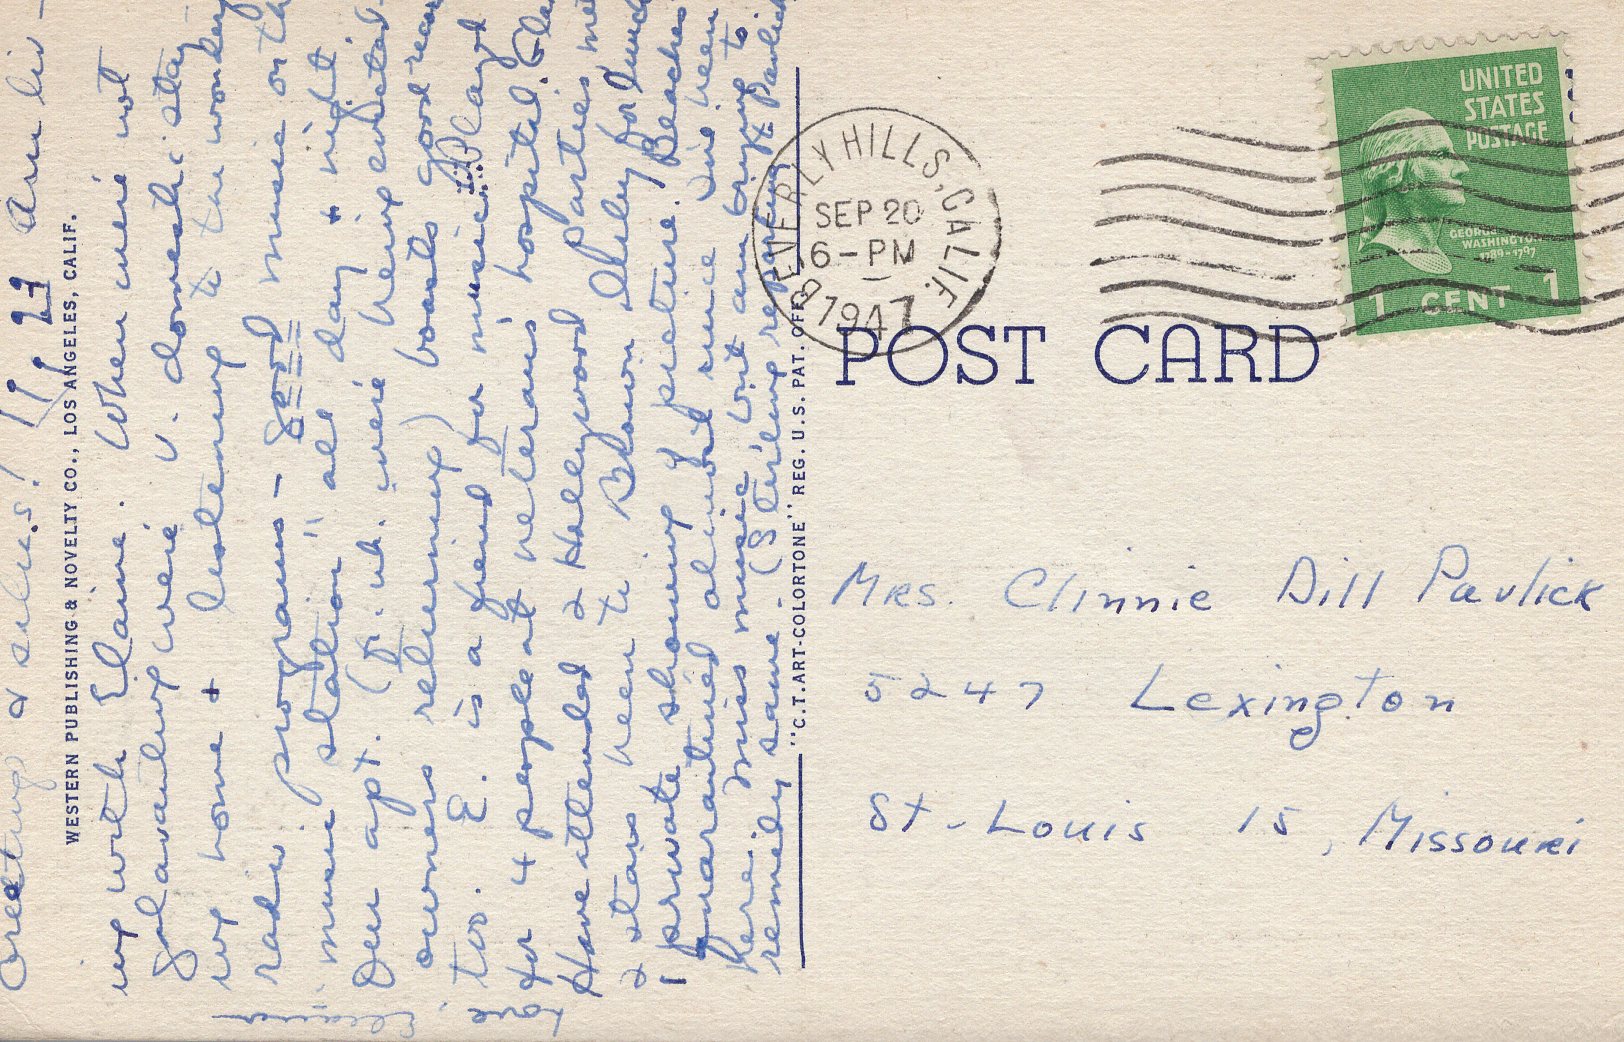 Greetings & Am liv-
ing with Elaine. When we're not
galavanting we're v. domestic stay-
ing home & listening to the
radio programs - good music on
music station" all day & night.
Our apt. (f. wh. we're being evicted-
owners returning) boasts good
too. E. is a friend for music. Played
for 4 people at veterans hospital.
Have attended 2 Hollywood Parties met
2 stars been to Brown Derby for lunch
1 private showing of picture. Beaches
quarantined almost since I've been
here. Miss music but am trying to
remedy same - (Sterling replacing Pavlick
Love,
Eleanor
WESTERN PUBLISHING & NOVELTY CO., LOS ANGELES, CALIF.
"C.T. ART-COLORTONE" REG. U. S. PAT. OFF.
BEVERLY HILLS, CALIF.
SEP 20
6-PM
1947
UNITED
STATES
POSTAGE
GEORGE
WASHINGTON
1789-1797
1 CENT 1
POST CARD
Mrs. Clinnie Dill Pavlick
5247 Lexington
St. Louis 15, Missouri